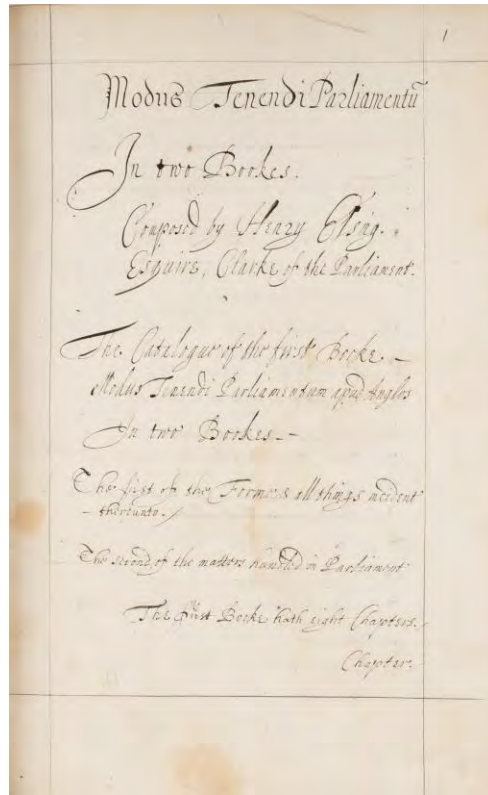 1
Modus Tenendi Parliamentū
In two Bookes.
Composed by Henry Elsing.
Esquire, Clarke of the Parliament.
The Catalogue of the first Booke –
Modus Tenendi Parliamentum apud Anglos
In two Bookes –
The first of the Forme & all things incident
– thereunto /
The second of the matters handled in Parliament
The first Booke hath eight Chapters.
Chapter.